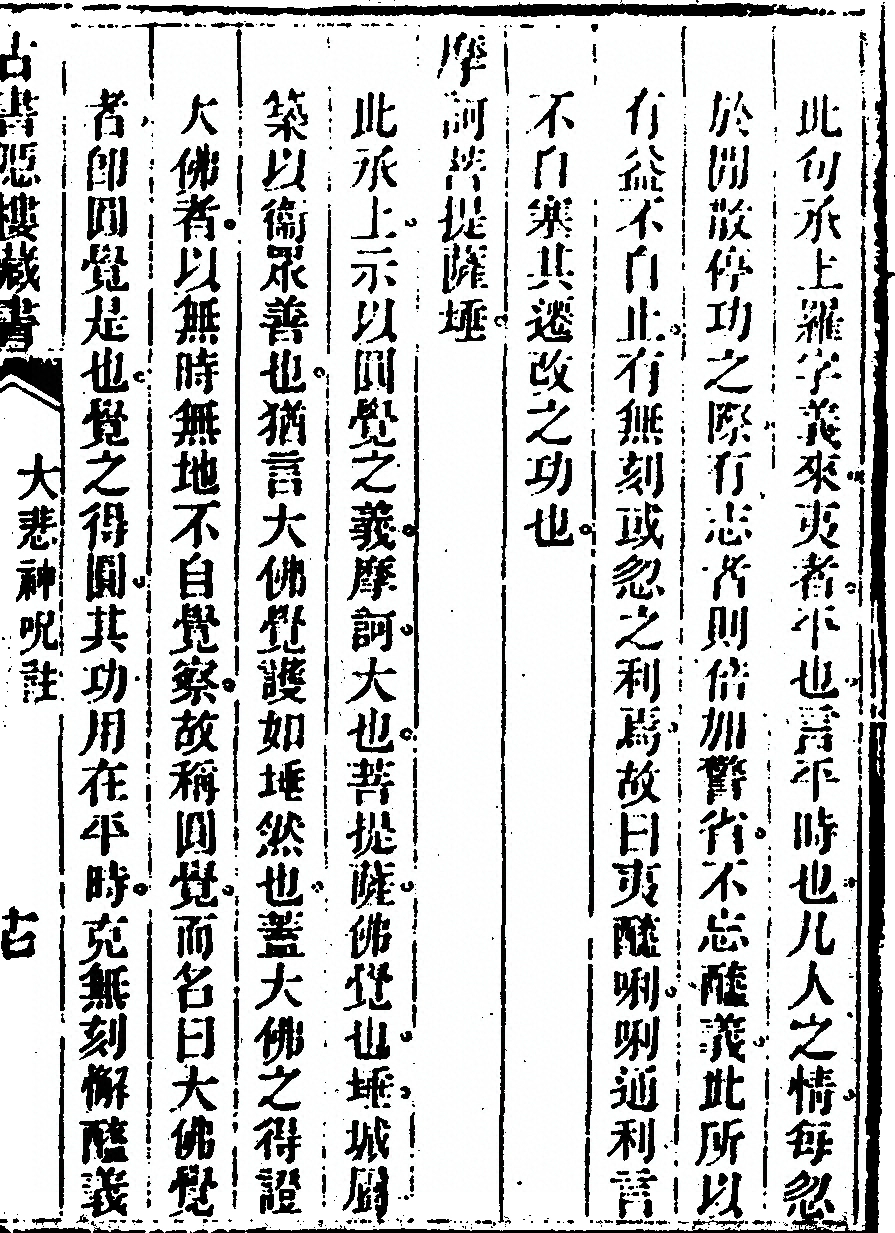 此句承上羅字義來夷者平也言平時也凡人之情每忽
於閒散停功之際有志者則倍加警省不忘醯義此所以
有益不自止有無刻或忽之利焉故曰夷醯唎唎通利言
不自棄其遷改之功也
摩訶菩提薩埵
此承上示以圓覺之義摩訶大也菩提薩佛覺也埵城
築以衞眾善也猶言大佛覺護如埵然也蓋大佛之得證
大佛者以無時無地不自覺察故稱圓覺而名曰大佛覺
者卽圓覺是也覺之得圓其功用在平時克無刻懈醯義
古書 樓藏書
大悲神呪註
古